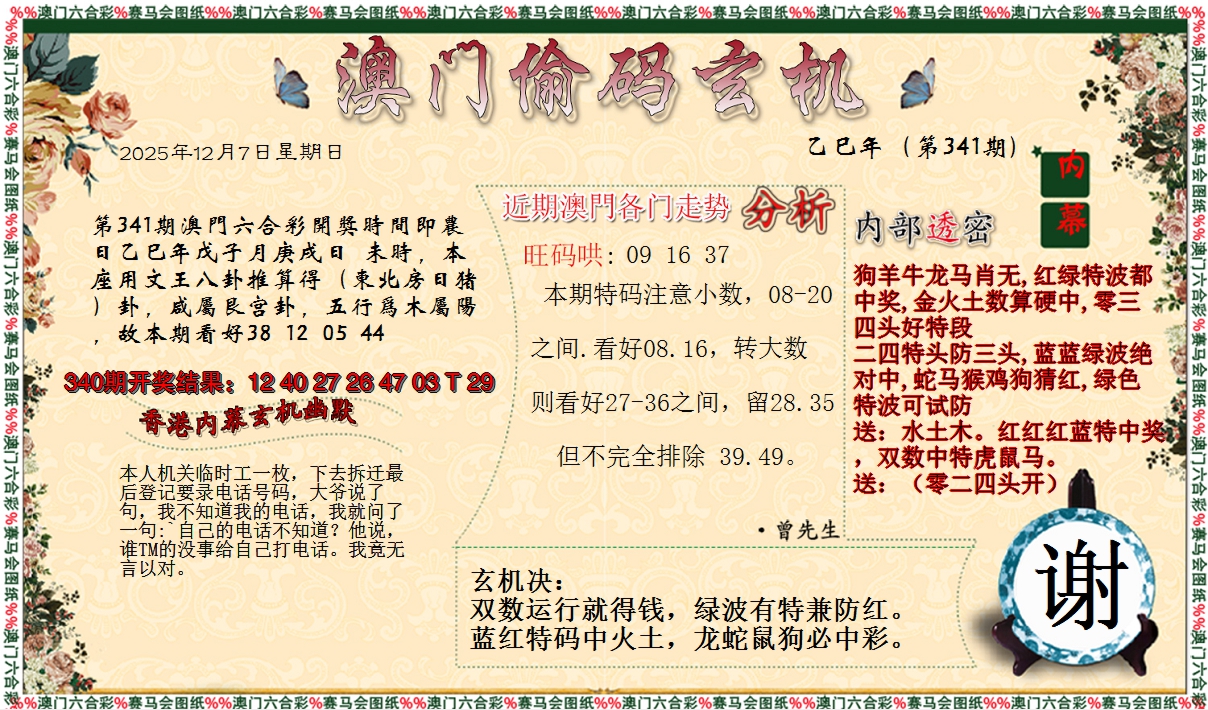 %%澳门六合彩%赛马会图纸%%澳门六合彩%赛马会图纸%%澳门六合彩%赛马会图纸%%澳门六合彩%赛马会图纸%%澳门六合彩%赛马会图纸%%澳门六合彩%赛马会图纸%%
澳门偷码玄机
2025年12月7日星期日
乙巳年（第341期）
内幕
第341期澳門六合彩開獎時間即農
日乙巳年戊子月庚戌日 未時，本
座用文王八卦推算得（東北房日猪
）卦，咸屬艮宫卦，五行爲木屬陽
，故本期看好38 12 05 44
340期开奖结果：12 40 27 26 47 03 T 29
香港内幕玄机幽默
本人机关临时工一枚，下去拆迁最
后登记要录电话号码，大爷说了
句，我不知道我的电话，我就问了
一句:`自己的电话不知道？他说，
谁TM的没事给自己打电话。我竟无
言以对。
近期澳門各门走势 分析
旺码哄: 09 16 37
本期特码注意小数，08-20
之间.看好08.16，转大数
则看好27-36之间，留28.35
但不完全排除 39.49。
·曾先生
内部透密
狗羊牛龙马肖无,红绿特波都
中奖,金火土数算硬中,零三
四头好特段
二四特头防三头,蓝蓝绿波绝
对中,蛇马猴鸡狗猜红,绿色
特波可试防
送：水土木。红红红蓝特中奖
，双数中特虎鼠马。
送：（零二四头开）
玄机决：
双数运行就得钱，绿波有特兼防红。
蓝红特码中火土，龙蛇鼠狗必中彩。
谢
%%澳门六合彩%赛马会图纸%%澳门六合彩%赛马会图纸%%澳门六合彩%赛马会图纸%%澳门六合彩%赛马会图纸%%澳门六合彩%赛马会图纸%%澳门六合彩%赛马会图纸%%